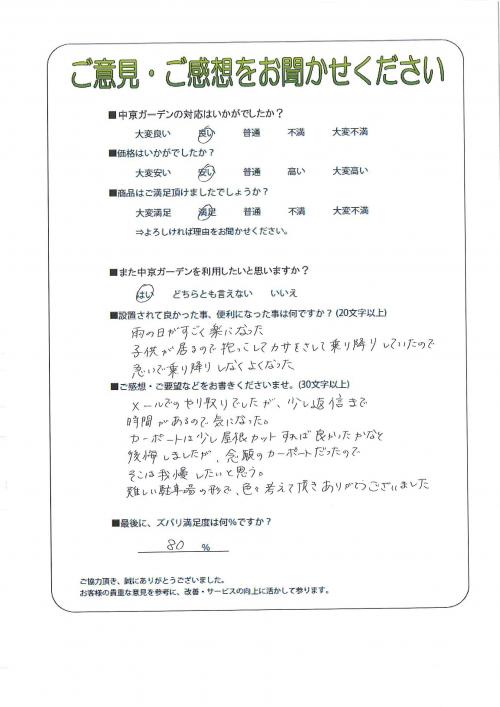 ご意見・ご感想をお聞かせください
■中京ガーデンの対応はいかがでしたか?
大変良い 良い 普通 不満 大変不満
■価格はいかがでしたか?
大変安い 安い 普通 高い 大変高い
■商品はご満足頂けましたでしょうか?
大変満足 満足 普通 不満 大変不満
⇒よろしければ理由をお聞かせください。
■また中京ガーデンを利用したいと思いますか?
はい どちらとも言えない いいえ
■設置されて良かった事、便利になった事は何ですか?(20文字以上)
雨の日がすごく楽になった
子供が居るので抱っこしてカサをさして乗り降りしていたので
急いで乗り降りしなくよくなった
■ご感想・ご要望などをお書きくださいませ。(30文字以上)
メールでのやり取りでしたが、少し返信まで
時間があるので気になった。
カーポートは少し屋根カットすれば良かったかなと
後悔しましたが、念願のカーポートだったので
そこは我慢したいと思う。
難しい駐車場の形で、色々考えて頂きありがとうございました
■最後に、ズバリ満足度は何%ですか?
80 %
ご協力頂き、誠にありがとうございました。
お客様の貴重な意見を参考に、改善・サービスの向上に活かして参ります。